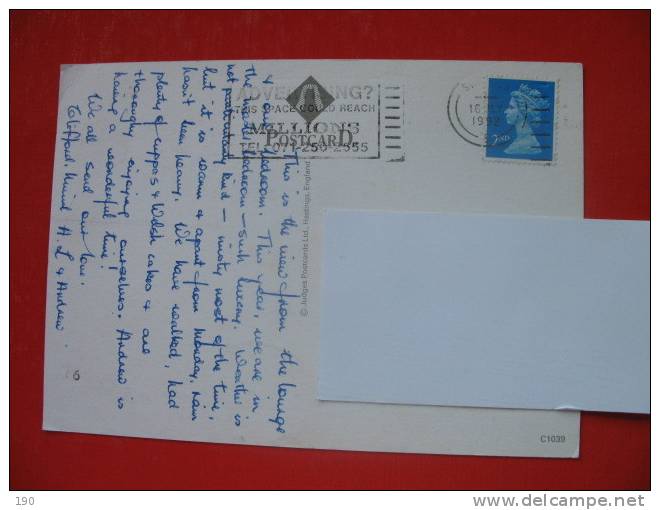 This is the view from the lounge
& our bedroom. This year, we are in
the bedroom - such luxury. Weather is
not particularly kind - misty most of the time,
but it is warm & apart from Monday, rain
hasn't been heavy. We have walked, had
plenty of cuppas & Welsh cakes & are
thoroughly enjoying ourselves. Andrew is
having a wonderful time!
We all send our love.
H. L & Andrew.
ADVERTISING?
THIS SPACE COULD REACH
MILLIONS
TEL 071-250-2555
POSTCARD
© Judges Postcards Ltd, Hastings, England
1992
2ND
C1039
6
190
delcampe.net